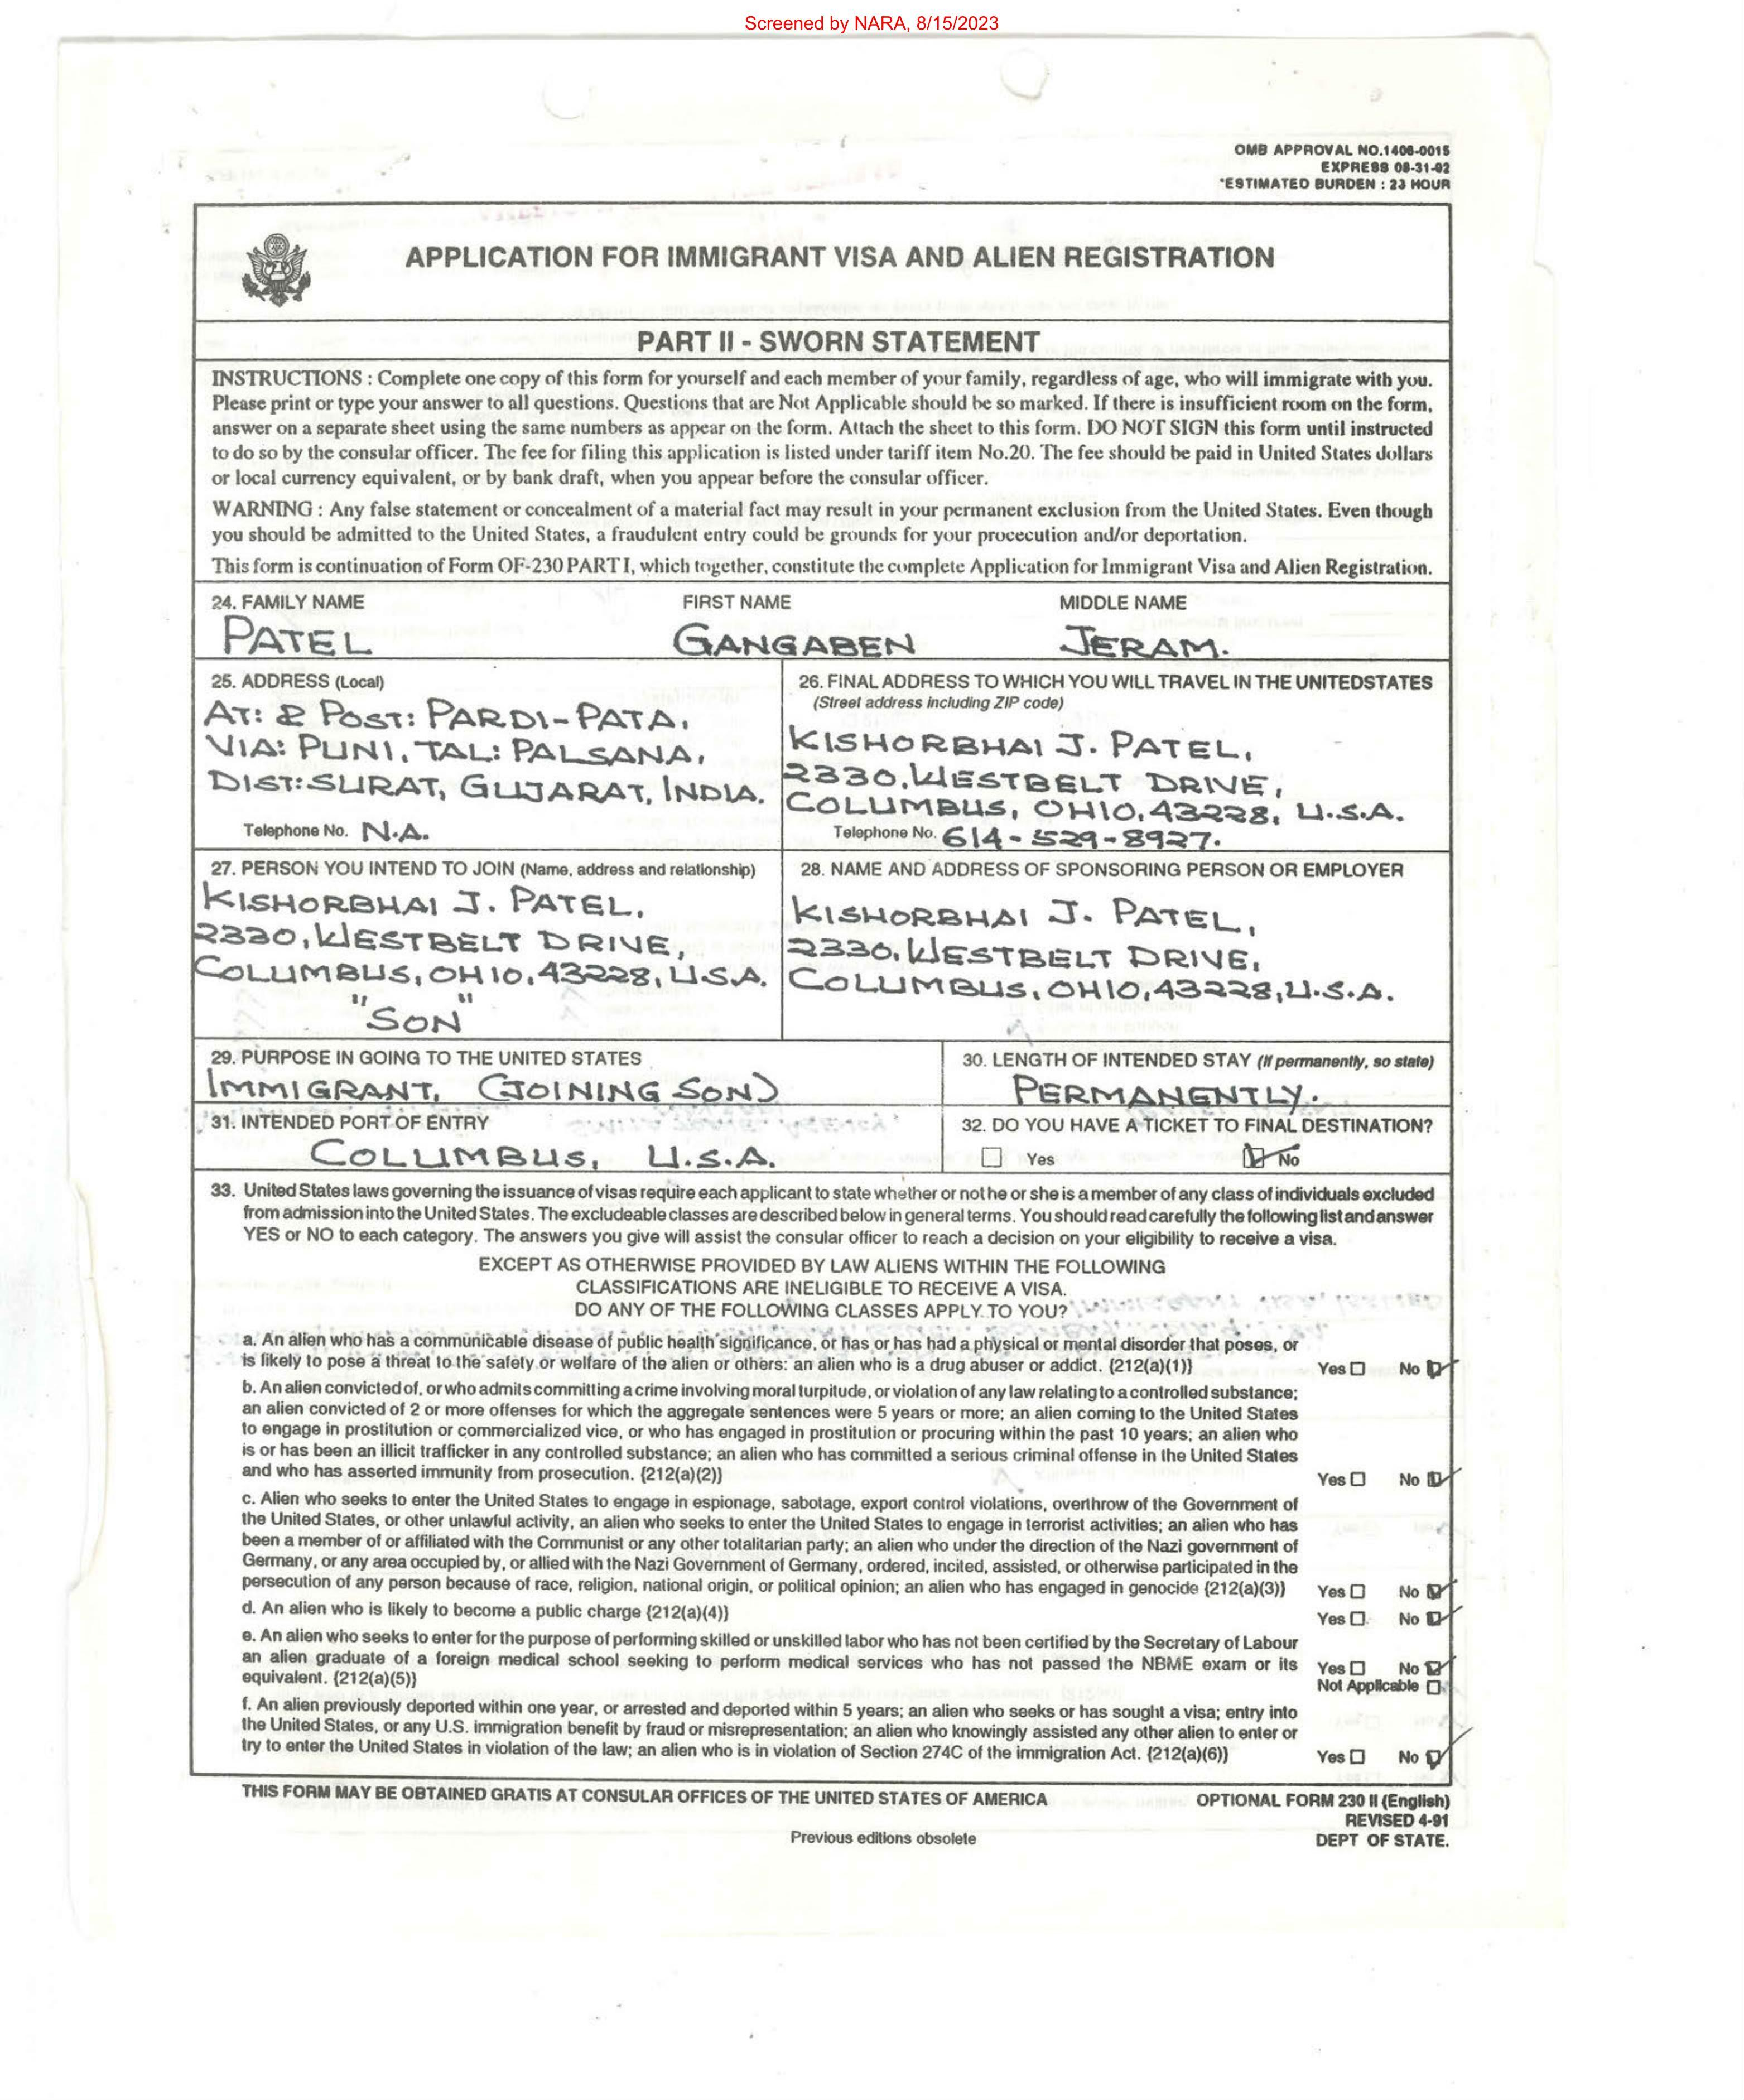 Screened by NARA, 8/15/2023
OMB APPROVAL NO.1406-0015
EXPRESS 08-31-92
*ESTIMATED BURDEN : 23 HOUR
APPLICATION FOR IMMIGRANT VISA AND ALIEN REGISTRATION
PART II - SWORN STATEMENT
INSTRUCTIONS : Complete one copy of this form for yourself and each member of your family, regardless of age, who will immigrate with you.
Please print or type your answer to all questions. Questions that are Not Applicable should be so marked. If there is insufficient room on the form,
answer on a separate sheet using the same numbers as appear on the form. Attach the sheet to this form. DO NOT SIGN this form until instructed
to do so by the consular officer. The fee for filing this application is listed under tariff item No.20. The fee should be paid in United States dollars
or local currency equivalent, or by bank draft, when you appear before the consular officer.
WARNING : Any false statement or concealment of a material fact may result in your permanent exclusion from the United States. Even though
you should be admitted to the United States, a fraudulent entry could be grounds for your procecution and/or deportation.
This form is continuation of Form OF-230 PART I, which together, constitute the complete Application for Immigrant Visa and Alien Registration.
24. FAMILY NAME FIRST NAME MIDDLE NAME
PATEL GANGABEN JERAM.
25. ADDRESS (Local)
AT: & POST: PARDI-PATA,
VIA: PUNI, TAL: PALSANA,
DIST: SURAT, GUJARAT, INDIA.
Telephone No. N.A.
26. FINAL ADDRESS TO WHICH YOU WILL TRAVEL IN THE UNITEDSTATES
(Street address including ZIP code)
KISHORBHAI J. PATEL,
2330, WESTBELT DRIVE,
COLUMBUS, OHIO, 43228, U.S.A.
Telephone No. 614-529-8927.
27. PERSON YOU INTEND TO JOIN (Name, address and relationship)
KISHORBHAI J. PATEL,
2330, WESTBELT DRIVE,
COLUMBUS, OHIO, 43228, U.S.A.
"SON"
28. NAME AND ADDRESS OF SPONSORING PERSON OR EMPLOYER
KISHORBHAI J. PATEL,
2330, WESTBELT DRIVE,
COLUMBUS, OHIO, 43228, U.S.A.
29. PURPOSE IN GOING TO THE UNITED STATES
IMMIGRANT, (JOINING SON)
30. LENGTH OF INTENDED STAY (If permanently, so state)
PERMANENTLY.
31. INTENDED PORT OF ENTRY
COLUMBUS, U.S.A.
32. DO YOU HAVE A TICKET TO FINAL DESTINATION?
Yes No
33. United States laws governing the issuance of visas require each applicant to state whether or not he or she is a member of any class of individuals excluded
from admission into the United States. The excludeable classes are described below in general terms. You should read carefully the following list and answer
YES or NO to each category. The answers you give will assist the consular officer to reach a decision on your eligibility to receive a visa.
EXCEPT AS OTHERWISE PROVIDED BY LAW ALIENS WITHIN THE FOLLOWING
CLASSIFICATIONS ARE INELIGIBLE TO RECEIVE A VISA.
DO ANY OF THE FOLLOWING CLASSES APPLY TO YOU?
a. An alien who has a communicable disease of public health significance, or has or has had a physical or mental disorder that poses, or
is likely to pose a threat to the safety or welfare of the alien or others: an alien who is a drug abuser or addict. {212(a)(1)} Yes No
b. An alien convicted of, or who admits committing a crime involving moral turpitude, or violation of any law relating to a controlled substance;
an alien convicted of 2 or more offenses for which the aggregate sentences were 5 years or more; an alien coming to the United States
to engage in prostitution or commercialized vice, or who has engaged in prostitution or procuring within the past 10 years; an alien who
is or has been an illicit trafficker in any controlled substance; an alien who has committed a serious criminal offense in the United States
and who has asserted immunity from prosecution. {212(a)(2)} Yes No
c. Alien who seeks to enter the United States to engage in espionage, sabotage, export control violations, overthrow of the Government of
the United States, or other unlawful activity, an alien who seeks to enter the United States to engage in terrorist activities; an alien who has
been a member of or affiliated with the Communist or any other totalitarian party; an alien who under the direction of the Nazi government of
Germany, or any area occupied by, or allied with the Nazi Government of Germany, ordered, incited, assisted, or otherwise participated in the
persecution of any person because of race, religion, national origin, or political opinion; an alien who has engaged in genocide {212(a)(3)} Yes No
d. An alien who is likely to become a public charge {212(a)(4)} Yes No
e. An alien who seeks to enter for the purpose of performing skilled or unskilled labor who has not been certified by the Secretary of Labour
an alien graduate of a foreign medical school seeking to perform medical services who has not passed the NBME exam or its Yes No
equivalent. {212(a)(5)} Not Applicable
f. An alien previously deported within one year, or arrested and deported within 5 years; an alien who seeks or has sought a visa; entry into
the United States, or any U.S. immigration benefit by fraud or misrepresentation; an alien who knowingly assisted any other alien to enter or
try to enter the United States in violation of the law; an alien who is in violation of Section 274C of the immigration Act. {212(a)(6)} Yes No
THIS FORM MAY BE OBTAINED GRATIS AT CONSULAR OFFICES OF THE UNITED STATES OF AMERICA OPTIONAL FORM 230 II (English)
REVISED 4-91
Previous editions obsolete DEPT OF STATE.